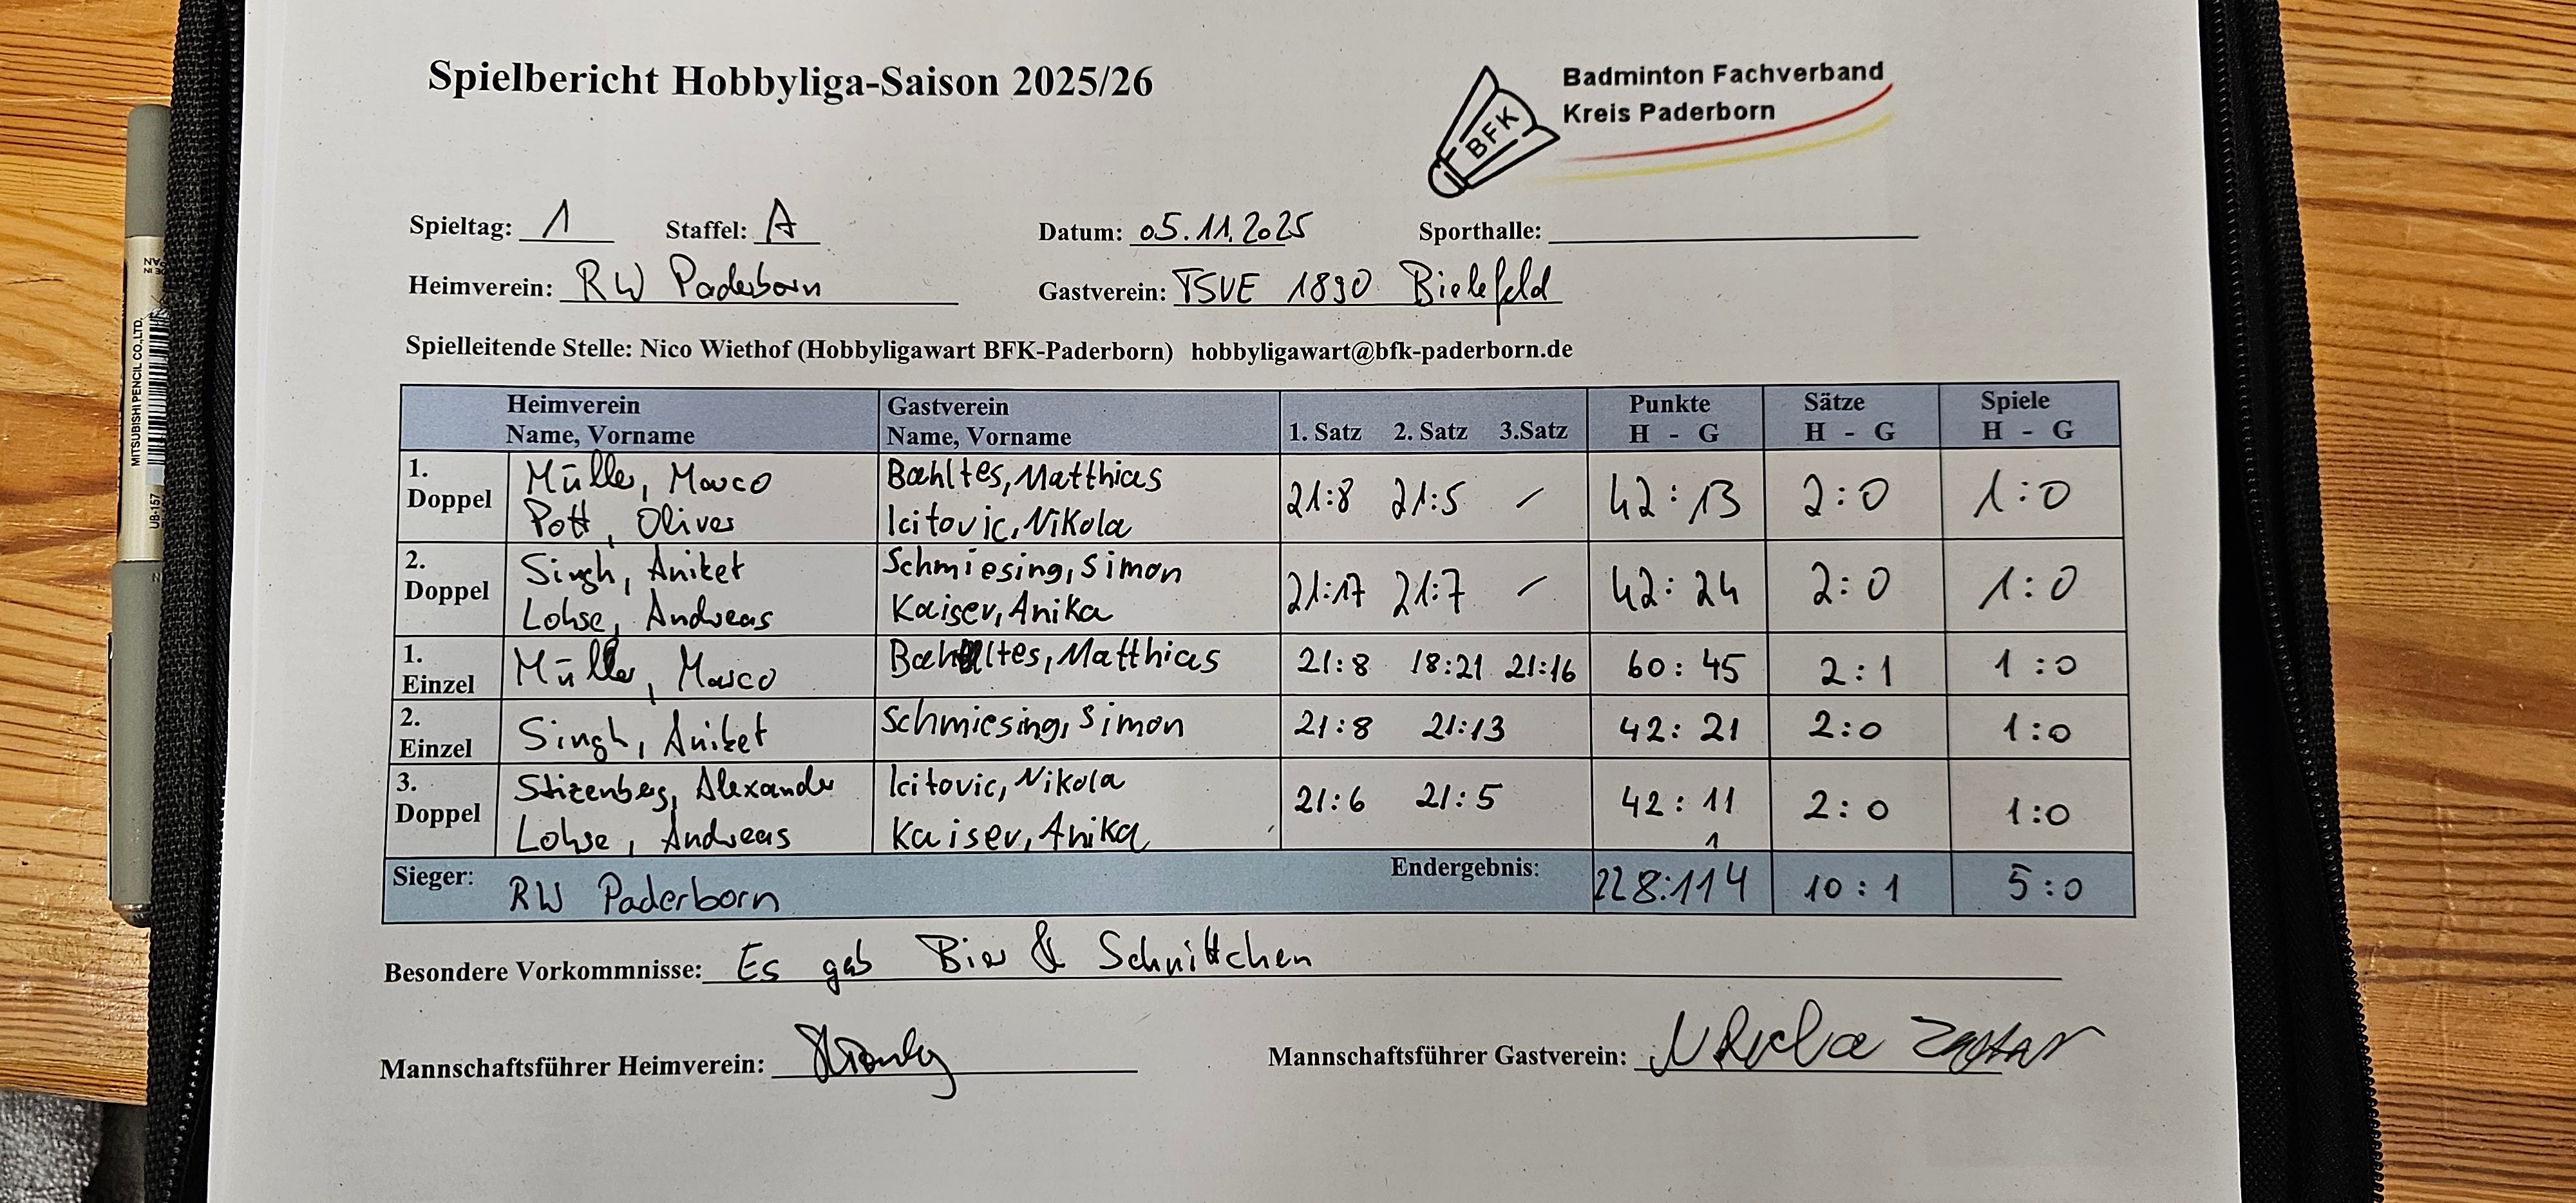 Spielbericht Hobbyliga-Saison 2025/26
Badminton Fachverband
Kreis Paderborn
BFK
Spieltag: 1 Staffel: A Datum: 05.11.2025 Sporthalle:
Heimverein: RW Paderborn Gastverein: TSVE 1890 Bielefeld
Spielleitende Stelle: Nico Wiethof (Hobbyligawart BFK-Paderborn) hobbyligawart@bfk-paderborn.de
Heimverein Gastverein Punkte Sätze Spiele
Name, Vorname Name, Vorname 1. Satz 2. Satz 3.Satz H - G H - G H - G
1. Doppel
Müller, Marco Bæhltes, Matthias 21:8 21:5 / 42:13 2:0 1:0
Pott, Oliver Icitovic, Nikola
2. Doppel
Singh, Aniket Schmiesing, Simon 21:17 21:7 / 42:24 2:0 1:0
Lohse, Andreas Kaiser, Anika
1. Einzel
Müller, Marco Matthias 21:8 18:21 21:16 60:45 2:1 1:0
2. Einzel
Singh, Aniket Schmiesing, Simon 21:8 21:13 42:21 2:0 1:0
3. Doppel
Alexander Icitovic, Nikola 21:6 21:5 42:11 2:0 1:0
Lohse, Andreas Kaiser, Anika
1
Sieger: RW Paderborn Endergebnis: 228:114 10:1 5:0
Besondere Vorkommnisse: Es gab Bier & Schnittchen
Mannschaftsführer Heimverein: Mannschaftsführer Gastverein: Nikola
MITSUBISHI PENCIL CO.,LTD.
UB-157